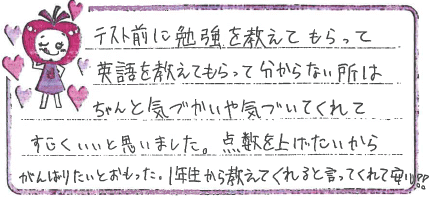 テスト前に勉強を教えてもらって
英語を教えてもらって分からない所は
ちゃんと気づかいや気づいてくれて
すごくいいと思いました。点数を上げたいから
がんばりたいとおもった。1年生から教えてくれると言ってくれて安心!!